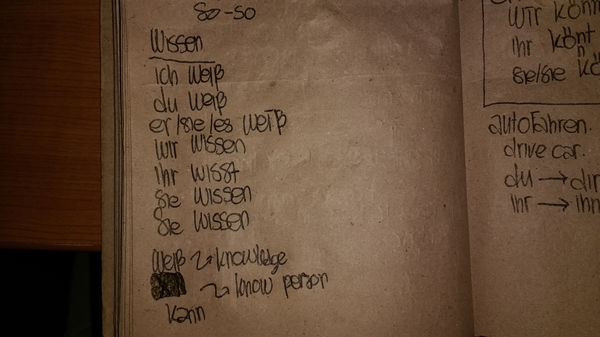 so-so
Wissen
ich weiß
du weiß
er/sie/es weiß
wir wissen
ihr wisst
sie wissen
Sie wissen
weiß → knowledge
→ know person
kann
wir könn
ihr könt
n
sie/sie kö
autofahren.
drive car.
du → dir
ihr → ihn